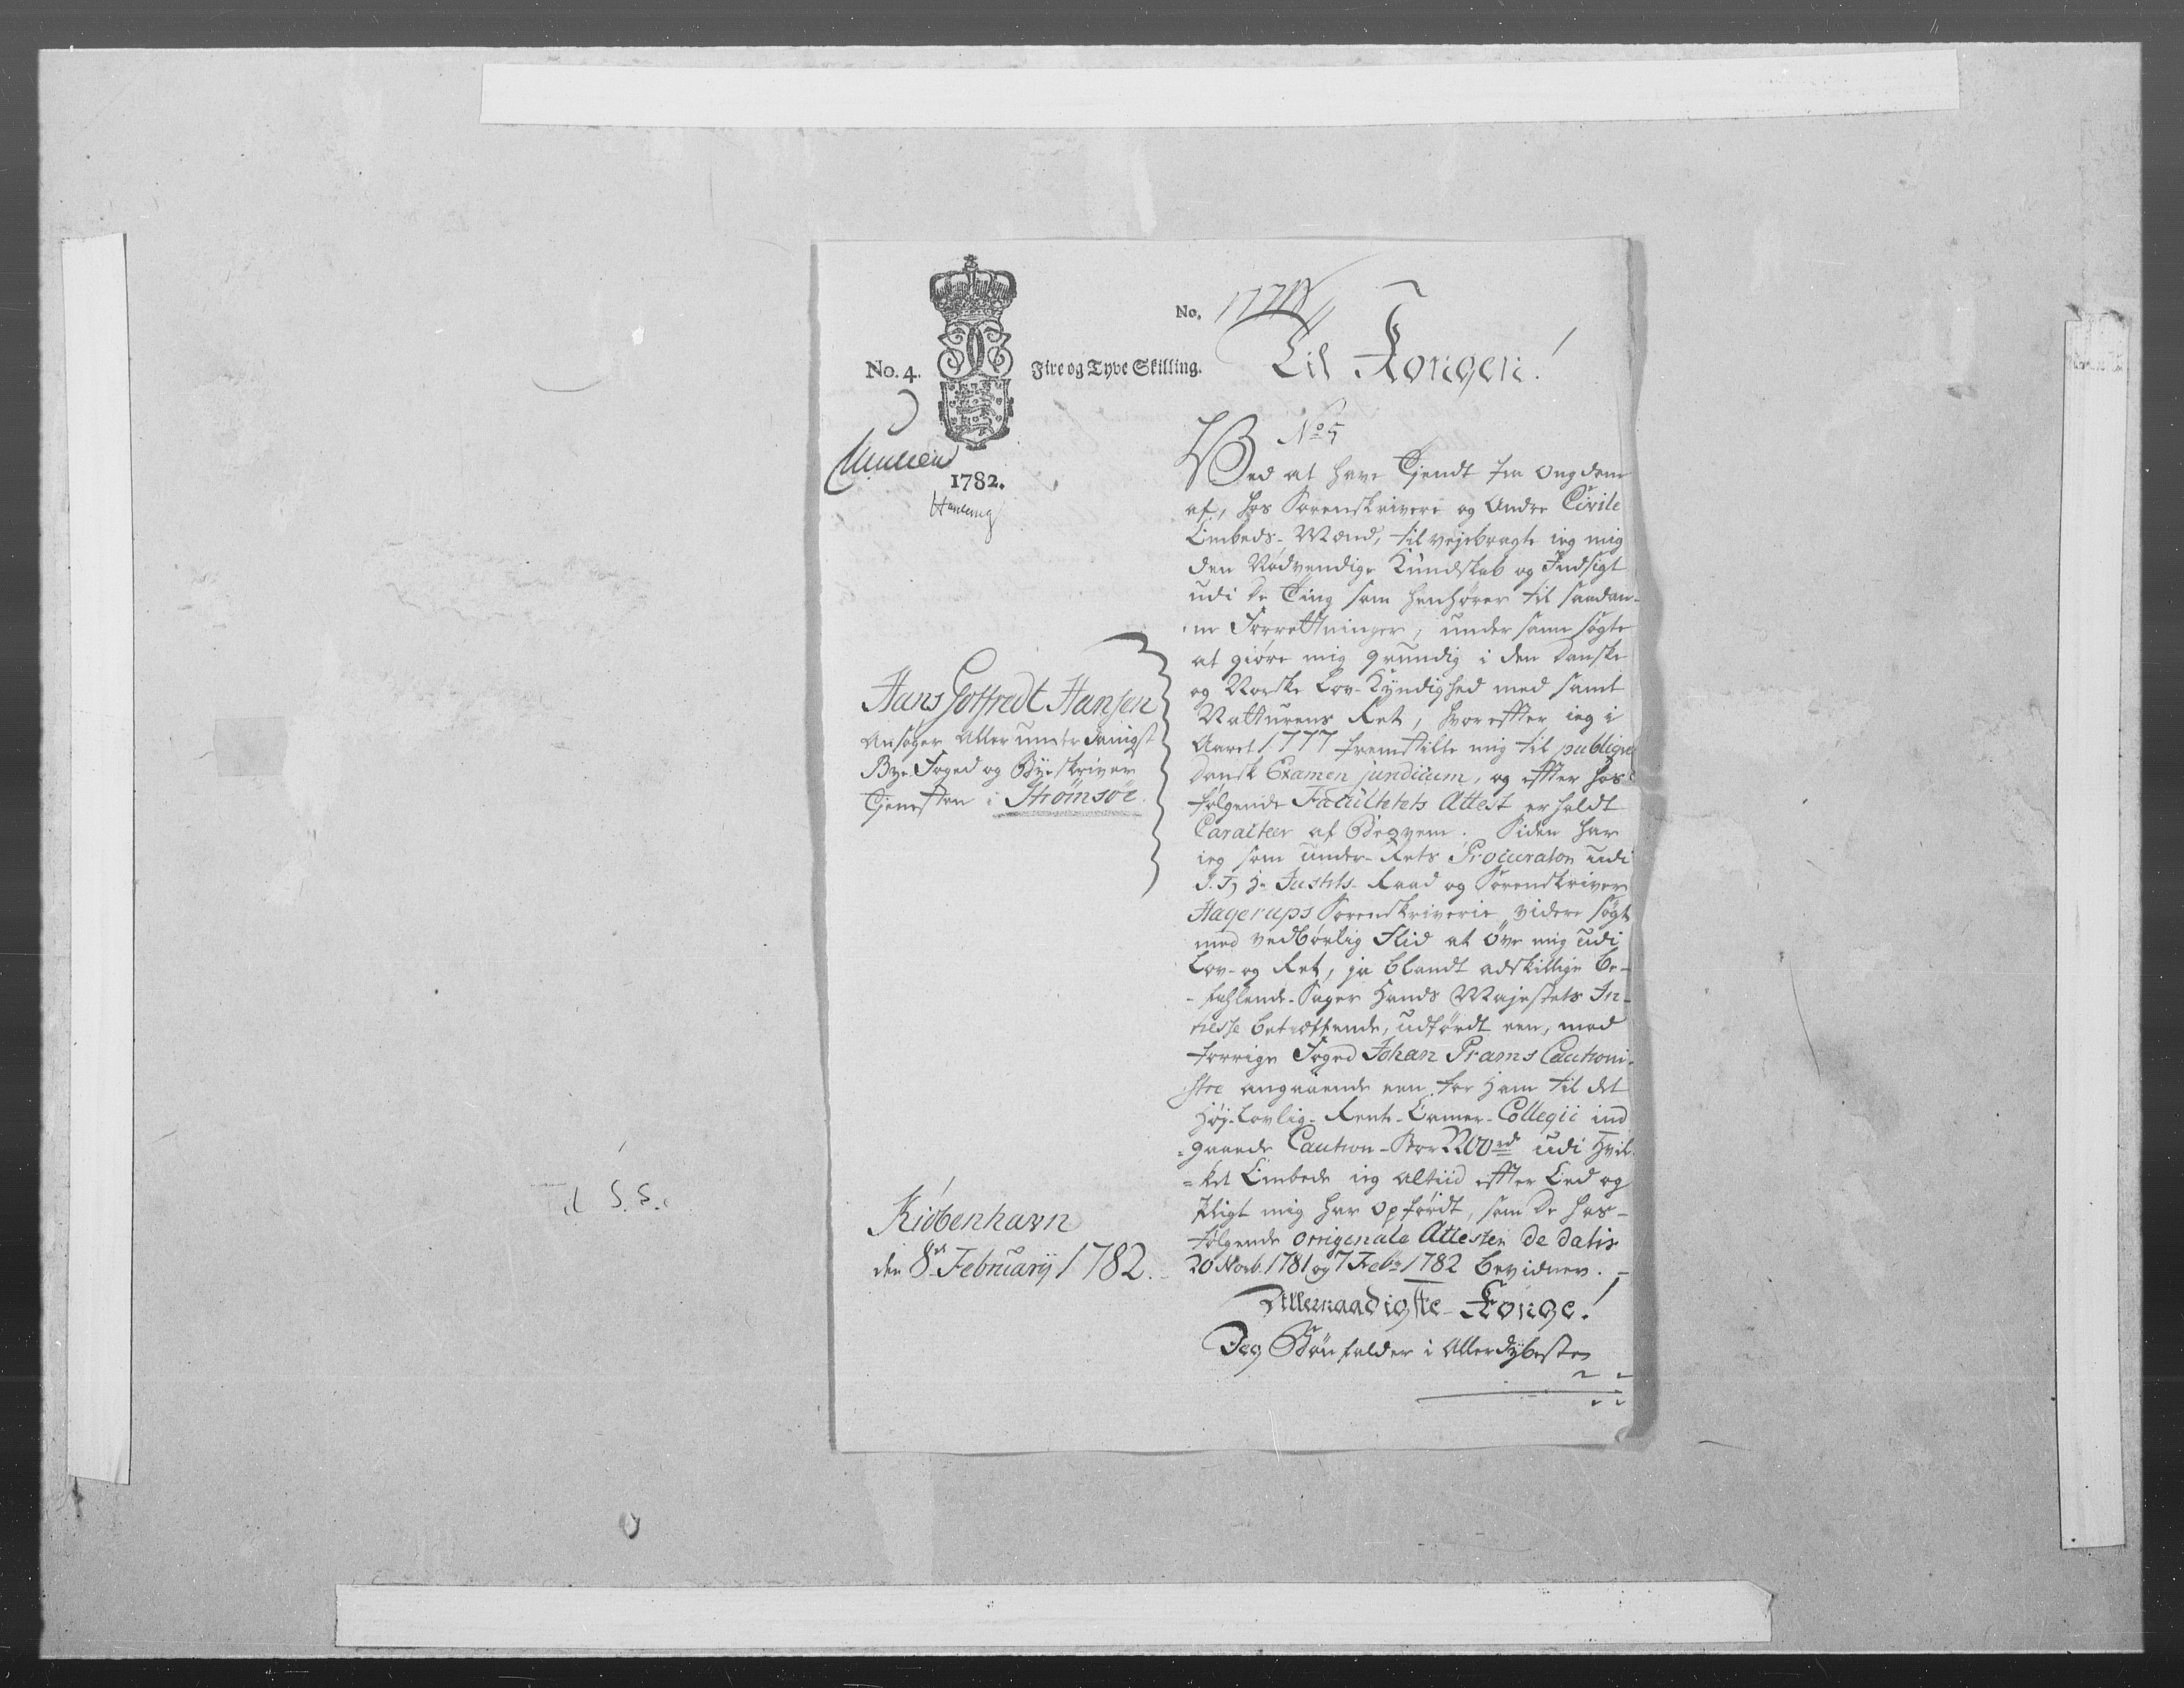 No. 1771
No. 4.
Fire og Tyve Skilling.
Til Kongen!
No 5
1782.
Ved at have Tjendt fra Ungdom
af, hos Sorenskrivere og Andre Civile
Embeds-Mænd, tilvejebragte ieg mig
den Nødvendige Kundskab og Indsigt
udi de Ting som henhører til saadan-
ne Forrettninger, under samme søgte
at giøre mig grundig i den Danske
og Norske Lov-Kyndighed med samt
Natturens Ret, hvoreffter ieg i
Aaret 1777 fremstilte mig til publique
Dansk Examen juridicum, og effter hos-
følgende Facultetets Attest erholdt
Caracteer af Beqvem. Siden har
ieg som Under-Rets Procurator udi
S. T. H. Justits-Raad og Sorenskriver
Hagerups Sorenskriverie, videre søgt
med vedbørlig Flid at øve mig udi
Lov- og Ret, ja blandt adskillige be-
-fahlende-Sager Hands Majestets In-
tresse betræffende, udført een, mod
forrige Foged Johan Prams Cautioni-
ster angaaende een for ham til det
Høj-Lovlig-Rente-Camer-Collegii ind
=gaaende Caution-Stor 2200 rd udi Hvil-
=ket Embede ieg altiid effter Eed og
Pligt mig har opført, som de hos-
følgende originale Attester de datis
20 Novb. 1781 og 7 Feb. 1782 bevidner.
Allernaadigste Konge!
Jeg Bønfalder i Allerdybeste
Hans Gotfredt Hansen
Ansøger Allerunderdanigst
Bye-Foged og Byeskriver
Tjenesten i Strømsöe.
Kiøbenhavn
den 8de February 1782.
Til S. S.